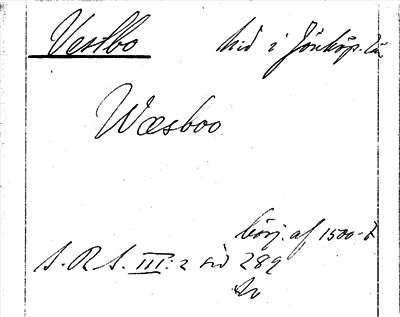 Vestbo hd i Jönköp. län
Wæsboo
börj. af 1500-t
S. R. S. III: 2 sid 289